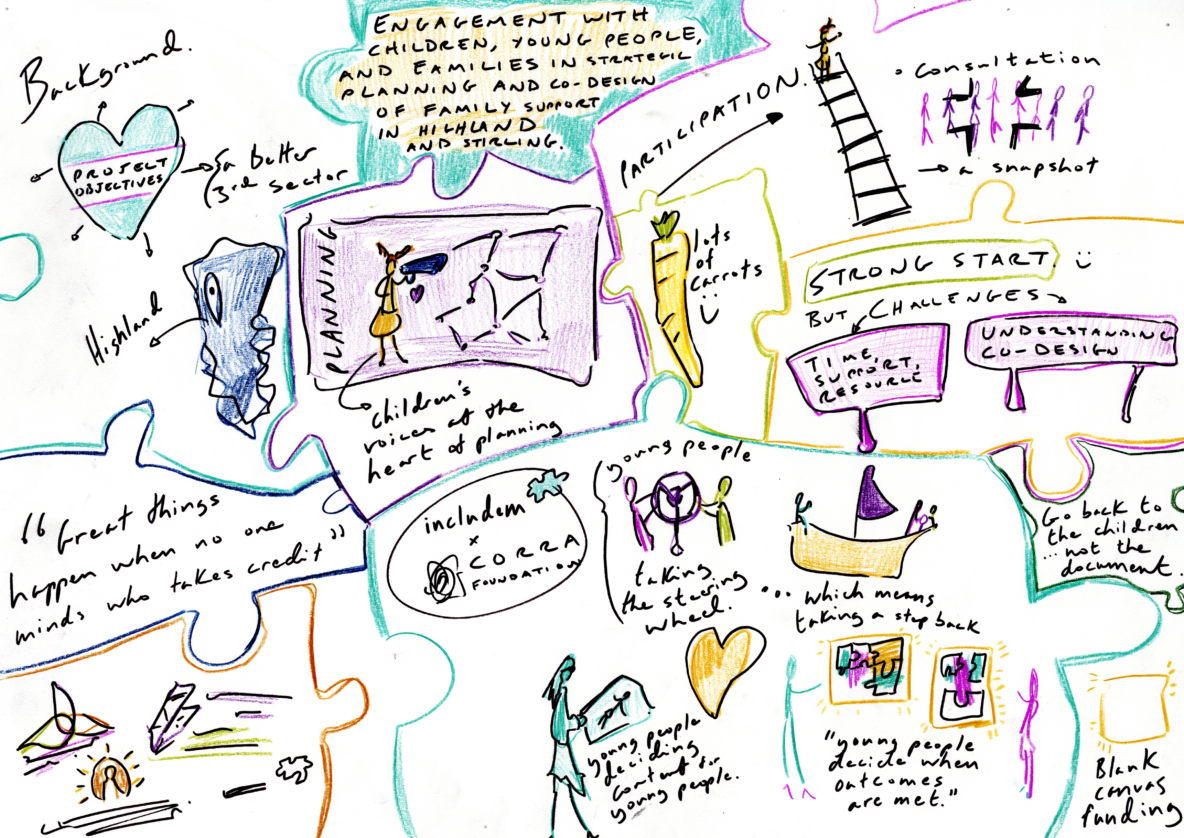 Background.
PROJECT
OBJECTIVES
a better
3rd sector
Highland
ENGAGEMENT WITH
CHILDREN, YOUNG PEOPLE,
AND FAMILIES IN STRATEGIC
PLANNING AND CO-DESIGN
OF FAMILY SUPPORT
IN HIGHLAND
AND STIRLING.
PLANNING
children's
voices at the
heart of planning
PARTICIPATION.
lots
of
carrots
• Consultation
a snapshot
STRONG START.
BUT CHALLENGES
TIME,
SUPPORT,
RESOURCE
UNDERSTANDING
CO-DESIGN
"Great things
happen when no one
minds who takes credit"
includem
x
CORRA
FOUNDATION
young people
taking
the steering
wheel.
... which means
taking a step back
Go back to
the children
... not the
document.
young people
deciding
content for
young people.
"young people
decide when
outcomes
are met."
Blank
canvas
funding